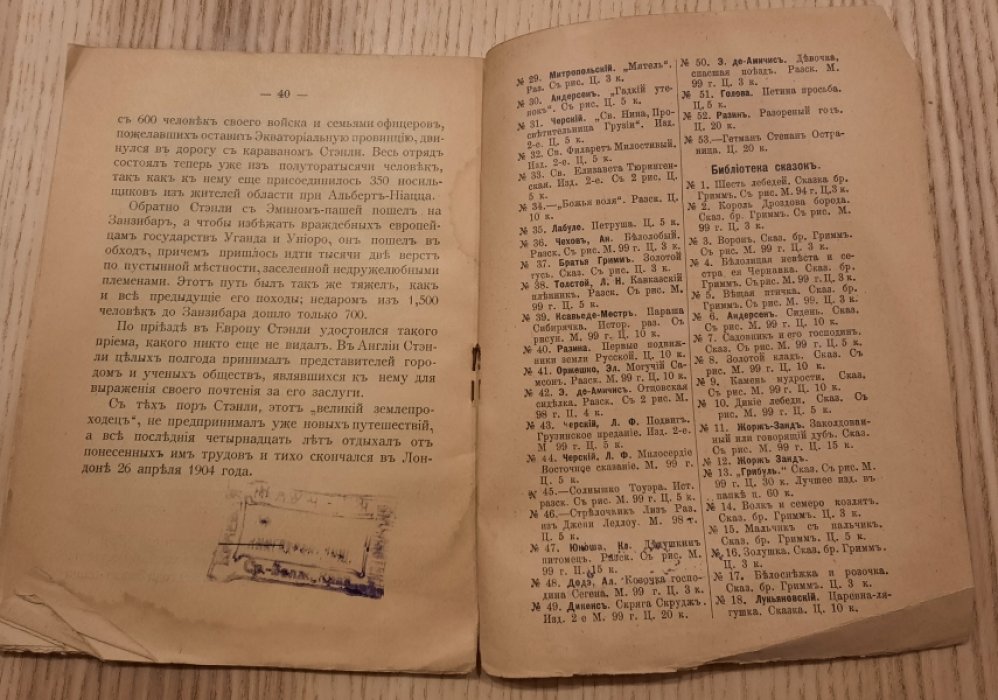 — 40 —
съ 600 человѣкъ своего войска и семьями офицеровъ,
пожелавшихъ оставить Экваторіальную провинцію, дви-
нулся въ дорогу съ караваномъ Стэнли. Весь отрядъ
состоялъ теперь уже изъ полуторатысячи человѣкъ,
такъ какъ къ нему еще присоединилось 350 носиль-
щиковъ изъ жителей области при Альбертъ-Ніацца.
Обратно Стэнли съ Эминомъ-пашей пошелъ на
Занзибаръ, а чтобы избѣжать враждебныхъ европей-
цамъ государствъ Уганда и Уніоро, онъ пошелъ въ
обходъ, причемъ пришлось идти тысячи двѣ верстъ
по пустынной мѣстности, заселенной недружелюбными
племенами. Этотъ путь былъ такъ же тяжелъ, какъ
и всѣ предыдущіе его походы; недаромъ изъ 1,500
человѣкъ до Занзибара дошло только 700.
По пріѣздѣ въ Европу Стэнли удостоился такого
пріема, какого никто еще не видалъ. Въ Англіи Стэн-
ли цѣлыхъ полгода принималъ представителей горо-
довъ и ученыхъ обществъ, являвшихся къ нему для
выраженія своего почтенія за его заслуги.
Съ тѣхъ поръ Стэнли, этотъ „великій землепро-
ходецъ“, не предпринималъ уже новыхъ путешествій,
а всѣ послѣднія четырнадцать лѣтъ отдыхалъ отъ
понесенныхъ имъ трудовъ и тихо скончался въ Лон-
донѣ 26 апрѣля 1904 года.
№ 29. Митропольскій. „Мятель“.
Раз. Съ рис. Ц. 3 к.
№ 30. Андерсенъ. „Гадкій уте-
нокъ“. Съ рис. Ц. 5 к.
№ 31. Черскій. „Св. Нина, Про-
свѣтительница Грузіи“. Изд.
2-е. Ц. 5 к.
№ 32. Св. Филаретъ Милостивый.
Изд. 2-е. Ц. 5 к.
№ 33. Св. Елизавета Тюринген-
ская. Изд. 2-е. Съ 2 рис. Ц.
5 к.
№ 34.—„Божья воля“. Разск. Ц.
10 к.
№ 35. Лабуле. Петруша. Ц. 5 к.
№ 36. Чеховъ, Ан. Бѣлолобый.
Разск. Съ рис. М. 99 г. Ц. 3 к.
№ 37. Братья Гриммъ. Золотой
гусь. Сказ. Съ рис. Ц. 3 к.
№ 38. Толстой, Л. Н. Кавказскій
плѣнникъ. Разск. Съ рис. М.
99 г. Ц. 5 к.
№ 39. Ксавье-де-Местръ. Параша
Сибирячка. Истор. раз. Съ
рисун. М. 99 г. Ц. 10 к.
№ 40. Разина. Первые подвиж-
ники земли Русской. Ц. 10 к.
№ 41. Оржешко, Эл. Могучій Са-
мсонъ. Разск. М. 99 г. Ц. 10 к.
№ 42. Э. де-Амичисъ. Отцовская
сидѣлка. Разск. Съ 2 рис. М.
98 г. Ц. 4 к.
№ 43. Черскій, Л. Ф. Подвигъ.
Грузинское преданіе. Изд. 2-е.
М 99 г. Ц. 5 к.
№ 44. Черскій, Л. Ф. Милосердіе
Восточное сказаніе. М. 99 г.
Ц. 5 к.
№ 45.—Солнышко Тоуэра. Ист.
разск. Съ рис. М. 99 г. Ц. 5 к.
№ 46.—Стрѣлочникъ Лизъ. Раз.
изъ Джени Ледлоу. М. 98 г.
Ц. 5 к.
№ 47. Юноша, Кл. Дѣдушкинъ
питомецъ. Разск. Съ рис. М.
99 г. Ц. 15 к.
№ 48. Додэ, Ал. Козочка госпо-
дина Сегена. М. 99 г. Ц. 3 к.
№ 49. Дикенсъ. Скряга Скруджъ.
Изд. 2 е М. 99 г. Ц. 20 к.
№ 50. Э. де-Амичисъ. Дѣвочка,
спасшая поѣздъ. Разск. М.
99 г. Ц. 3 к.
№ 51. Голова. Петина просьба.
Ц. 5 к.
№ 52. Разинъ. Разореный годъ.
Ц. 20 к.
№ 53.—Гетманъ Степанъ Остра-
ница. Ц. 20 к.
Библіотека сказокъ.
№ 1. Шесть лебедей. Сказка бр.
Гриммъ. Съ рис. М. 94 г. Ц. 3 к.
№ 2. Король Дроздова борода.
Сказ. бр. Гриммъ. Съ рис. М.
99 г. Ц. 3 к.
№ 3. Воронъ. Сказ. бр. Гриммъ.
Съ рис. М. 99 г. Ц. 3 к.
№ 4. Бѣлолицая невѣста и се-
стра ея Чернавка. Сказ. бр.
Гриммъ. Съ рис. М. 99 г. Ц. 3 к.
№ 5. Вѣщая птичка. Сказ. бр.
Гриммъ. Съ рис. М. 99. Ц. 3 к.
№ 6. Андерсенъ. Сидень. Сказ.
Съ рис. М. 99 г. Ц. 3 к.
№ 7. Садовникъ и его господинъ.
Сказ. Съ рис. М. 99 г. Ц. 3 к.
№ 8. Золотой кладъ. Сказ. Съ
рис. М. 99 г. Ц. 10 к.
№ 9. Камень мудрости. Сказ.
Съ рис. М. 99 г. Ц. 10 к.
№ 10. Дикіе лебеди. Сказ. Съ
рис. М. 99 г. Ц. 5 к.
№ 11. Жоржъ-Зандъ. Заколдован-
ный или говорящій дубъ. Сказ.
Съ рис. М. 99 г. Ц. 15 к.
№ 12. Жоржъ Зандъ.
№ 13. „Грибуль.“ Сказ. Съ рис. М.
99 г. Ц. 30 к. Лучшее изд. въ
папкѣ п. 60 к.
№ 14. Волкъ и семеро козлятъ.
Сказ. бр. Гриммъ. Ц. 3 к.
№ 15. Мальчикъ съ пальчикъ.
Сказ. бр. Гриммъ. Ц. 5 к.
№ 16. Золушка. Сказ. бр. Гриммъ.
Ц. 3 к.
№ 17. Бѣлоснѣжка и розочка.
Сказ. бр. Гриммъ. Ц. 3 к.
№ 18. Лукьяновскій. Царевна-ля-
гушка. Сказка. Ц. 10 к.